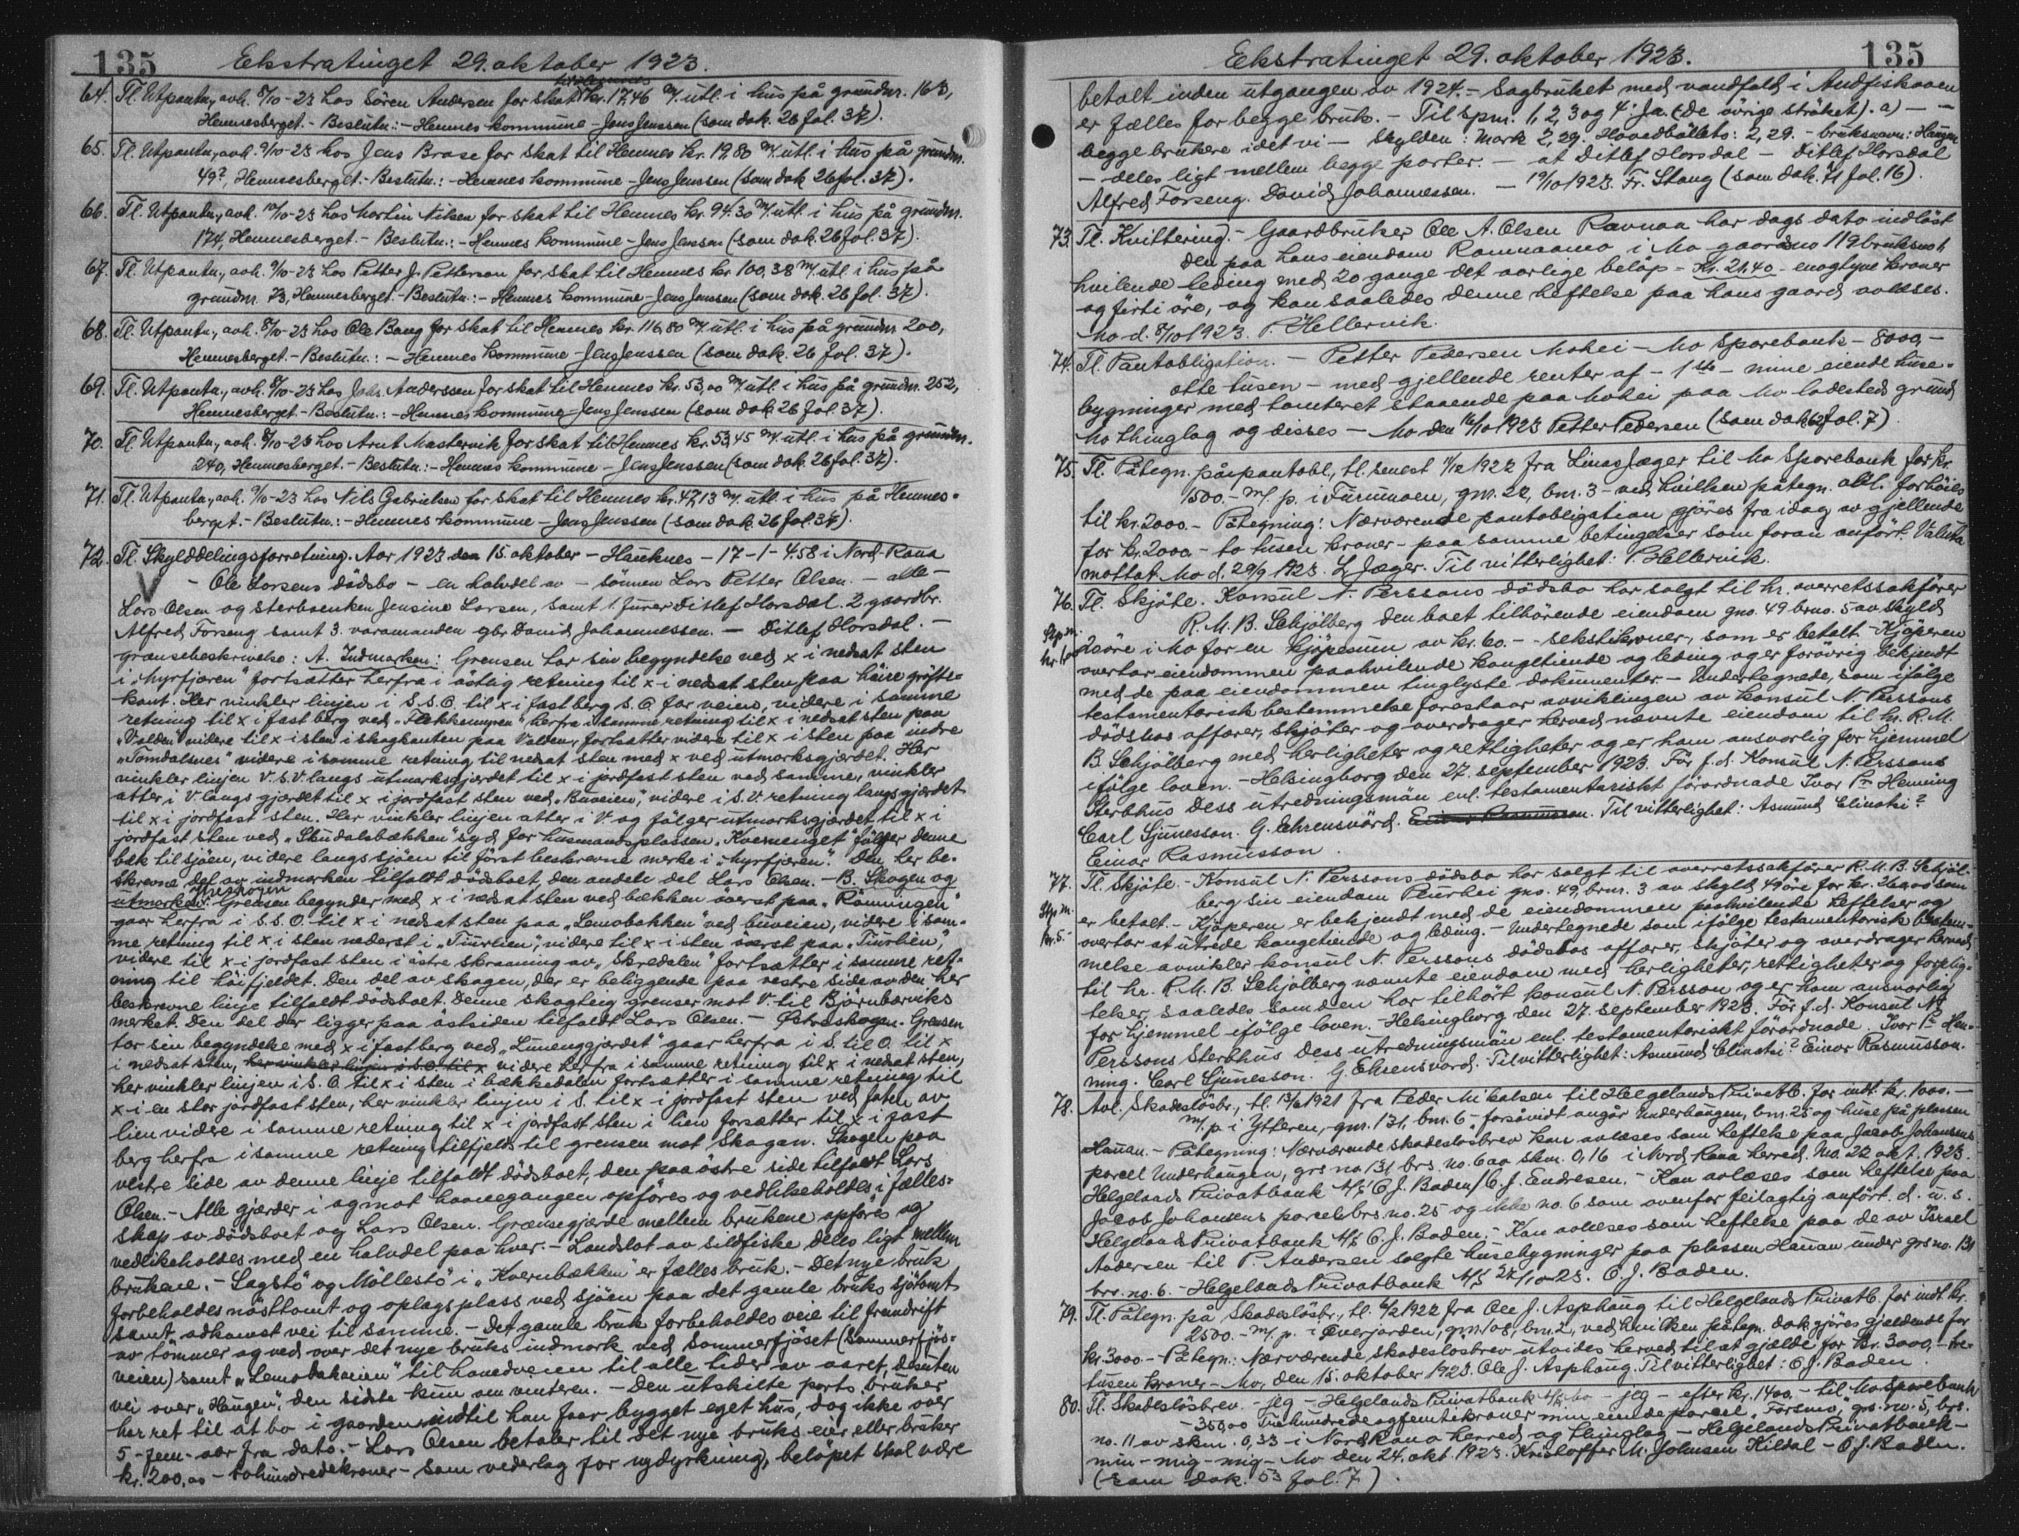 135
Ekstratinget 29. oktober 1923.
64. Tl. Utpantn., avh. 8/10-23 hos Sören Andersen for skat til Hemnes kr. 17,46 m/ utl. i hus på grundnr. 163,
Hemnesberget. - Beslutn.: - Hemnes kommune - Jens Jenssen (som dok. 26 fol. 37).
65. Tl. Utpantn., avh. 9/10-23 hos Jens Brase for skat til Hemnes kr. 19,80 m/ utl. i hus på grundnr.
49?, Hemnesberget. - Beslutn.: - Hemnes kommune - Jens Jenssen (som dok 26 fol. 37).
66. Tl. Utpantn., avh. 10/10-23 hos Martin Nilsen for skat til Hemnes kr. 94.30 m/ utl. i hus på grundnr.
174, Hemnesberget. - Beslutn.: - Hemnes kommune - Jens Jenssen (som dok. 26 fol. 37).
67. Tl. Utpantn., avh. 9/10-23 hos Petter J. Petterson for skat til Hemnes kr. 100,38 m/ utl. i hus på
grundnr. 73, Hemnesberget. - Beslutn.: - Hemnes kommune - Jens Jenssen (som dok. 26 fol. 37).
68. Tl. Utpantn., avh. 8/10-23 hos Ole Bang for skat til Hemnes kr. 116,80 m/ utl. i hus på grundnr. 200,
Hemnesberget. - Beslutn.: - Hemnes kommune - Jens Jenssen (som dok. 26 fol. 37).
69. Tl. Utpantn., avh. 8/10-23 hos Johs. Anderssen for skat til Hemnes kr. 53,00 m/ utl. i hus på grundnr. 252,
Hemnesberget - Beslutn.: - Hemnes kommune - Jens Jenssen (som dok. 26 fol. 37).
70. Tl. Utpantn., avh. 8/10-23 hos Arnt Mastervik for skat til Hemnes kr. 53,45 m/ utl. i hus på grundnr.
240, Hemnesberget. - Beslutn.: - Hemnes kommune - Jens Jenssen (som dok. 26 fol. 37).
71. Tl. Utpantn., avh. 9/10-23 hos Nils Gabrielsen for skat til Hemnes kr. 47,13 m/ utl. i hus på Hemnes-
berget. - Beslutn.: - Hemnes kommune - Jens Jenssen (som dok. 26 fol. 37).
72. Tl. Skylddelingsforretning. Aar 1923 den 15 oktober - Hauknes - 17 - 1 - 4.58 i Nord Rana
- Ole Larsens dödsbo - en halvdel av - sönnen Lars Petter Olsen. - alle -
Lars Olsen og sterboenken Jensine Larsen, samt 1. Jurer Ditlef Horsdal. 2 gaardbr.
Alfred Forseng samt 3. varamanden gbr David Johannessen. - Ditlef Horsdal. -
grænsebeskrivelse: A. Indmarken: Grensen tar sin begyndelse ved x i nedsat sten
i „Myrfjæren" fortsætter herfra i östlig retning til x i nedsat sten paa höire gröfte-
kant. Her vinkler linjen i S.S.O. til x i fast berg S.O. for veien, videre i samme
retning til x i fast berg ved „Flekkemyren" herfra i samme retning til x i nedsat sten paa
„Valden" videre til x i sten i skogkanten paa Valden, fortsætter videre til x i sten paa indre
„Tomdalsnes" videre i samme retning til nedsat sten med x ved utmarksgjærdet. Her
vinkler linjen V.S.V. langs utmarksgjærdet til x i jordfast sten ved samme, vinkler
atter i V. langs gjærdet til x i jordfast sten ved „Buveien", videre i S.V. retning langs gjærdet
til x i jordfast sten. Her vinkler linjen atter i V. og fölger utmarksgjærdet til x i
jordfast sten ved „Skudalsbækken" syd for husmandsplassen „Kvernenget" fölger denne
bæk til sjöen, videre langs sjöen til först beskrevne merke i „Myrfjæren". Den her be-
skrevne del av indmarken tilfaldt dödsboet, den anden del Lars Olsen. - B. Skogen og
utmarken: Grensen begynder med x i nedsat sten ved bækken överst paa „Rönningen"
gaar herfra i S.S.O. til x i nedsat sten paa „Lemobakken" ved buveien, videre i sam-
me retning til x i sten nederst i „Tiurlien", videre til x i sten överst paa „Tiurlien",
videre til x i jordfast sten i östre skraaning av „Skredalen" fortsætter i samme ret-
ning til höifjeldet. Den del av skogen, der er beliggende paa vestre side av den her
beskrevne linje tilfaldt dödsboet. Denne skogteig grenser mot V. til Björnbærviks
merket. Den del der ligger paa östsiden tilfaldt Lars Olsen. - Östreskogen. Grensen
tar sin begyndelse med x i fast berg ved „Linenggjerdet" gaar herfra i S. til O. til x
i nedsat sten, her vinkler linjen i S.O. til x videre herfra i samme retning til x i nedsat sten,
her vinkler linjen i S.O. til x i sten i bækkedalen fortsætter i samme retning til
x i en stor jordfast sten, her vinkler linjen i S. til x i jordfast sten ved foten av
lien videre i samme retning til x i jordfast sten i lien forsætter til x i fast
berg herfra i samme retning tilfjelds til grensen mot Skogan. Skogen paa
vestre side av denne linje tilfaldt dödsboet, den paa östre side tilfaldt Lars
Olsen. - Alle gjærder i og mot havnegangen opföres og vedlikeholdes i fælles-
skap av dödsboet og Lars Olsen. Grænsegjærde mellem brukene opföres og
vedlikeholdes med en halvdel paa hver. - Landslot av sildfiske deles ligt mellem
brukene. - Sagstö og Möllestö i „Kvernbækken" er fælles bruk. - Det nye bruk
forbeholdes nausttomt og oplagsplass ved sjöen paa det gamle bruks sjötomt
samt adkomst vei til samme. - Det gamle bruk forbeholdes veie til fremdrift
av tömmer og ved over det nye bruks indmark ved sommerfjöset (sommerfjös-
veien) samt „Lemobakveien" til hovedveien til alle tider av aaret, desuten
vei over „Haugen", den sidste kun om vinteren. - Den utskilte parts bruker
har ret til at bo i gaarden indtil han faar bygget eget hus, dog ikke over
5 - fem - aar fra dato. - Lars Olsen betaler til det nye bruks eier eller bruker
kr. 200,00 - tohundredekroner - som vederlag for nydyrkning, belöpet skal være
135
Ekstratinget 29. oktober 1923.
betalt inden utgangen av 1924. - Sagbruket med vandfald i Andfiskaaen
er fælles for begge bruk. - Til spm. 1, 2, 3 og 4: Ja. (De övrige ströket). a) - -
begge brukere idet vi - Skylden: Mark 2,29. Hovedbölets: 2,29. - bruksnavn: Haugen
- deles ligt mellem begge parter. - at Ditlef Horsdal - Ditlef Horsdal
Alfred Forseng. David Johannessen. - 19/10 1923. Fr. Stang (som dok. 71 fol. 16).
73. Tl. Kvittering. - Gaardbruker Ole A. Olsen Ravnaa har dags dato indlöst
den paa hans eiendom Ravnaamo i Mo gaardsno 119 bruksno 1
hvilende leding med 20 gange det aarlige belöp - Kr. 21.40 - enogtyve kroner
og firti öre, og kan saaledes denne heftelse paa hans gaard avlæses.
Mo d. 8/10 1923. P. Hellervik.
74. Tl. Pantobligation. - Petter Pedersen Mohei - Mo Sparebank - 8000, -
otte tusen - med gjellende renter af - 1ste - mine eiende huse-
bygninger med tomteret staaende paa Mohei paa Mo ladesteds grund
Mo thinglag og disses - Mo den 16/10 1923 Petter Pedersen (som dok 62 fol. 7).
75. Tl. Påtegn. på pantobl, tl. senest 11/12 1922 fra Linas Jæger til Mo Sparebank for kr.
1500. - m/ p. i Furumoen, gnr. 22, bnr. 3 - ved hvilken påtegn. obl. forhöies
til kr. 2000. - Påtegning: Nærværende pantobligation gjöres fra idag av gjellende
for kr. 2000. - to tusen kroner - paa samme betingelser som foran anfört. Valuta
mottat. Mo d. 29/9 1923. L. Jæger. Til vitterlighet: P. Hellervik.
76. Tl. Skjöte. Konsul N. Perssons dödsbo har solgt til hr. overretssakförer
R. M. B. Schjölberg den boet tilhörende eiendom gno. 49 brno. 5 av skyld
Stp. m. kr.
2 öre i Mo for en kjöpesum av kr. 60. - - sekstikroner, som er betalt - Kjöperen
overtar eiendommen paahvilende kongetiende og leding og er forövrig bekjendt
med de paa eiendommen tinglyste dokumenter. - Undertegnede, som ifölge
testamentarisk bestemmelse forestaar avviklingen av konsul N. Perssons
dödsbos affarer, skjöter og overdrager herved nævnte eiendom til hr. R. M.
B. Schjölberg med herligheter og rettigheter og er ham ansvarlig for hjemmel
ifölge loven. - Helsingborg den 27. september 1923. För f. d. Konsul N. Perssons
Sterbhus Dess utredningsmän enl. testamentariskt förordnade Ivar Pn Hemming
Carl Sjunesson. G. Ehrensvärd. Einar Rasmusson. Til vitterlighet: Asmund Clinatsi?
Einar Rasmusson.
77. Tl. Skjöte. - Konsul N. Perssons dödsbo har solgt til overretssakförer R. M. B. Schjöl-
berg sin eiendom Peurhei gno. 49, brnr. 3 av skyld 49 öre for kr. 26,00 som
Stp. m. kr. 5.-
er betalt. - Kjöperen er bekjendt med de eiendommen paahvilende heftelser og
overtar at utrede kongetiende og leding. - Undertegnede som ifölge testamentarisk bestem-
melse avvikler konsul N. Perssons dödsbos affarer, skjöter og overdrager herved
til hr. R. M. B. Schjölberg nævnte eiendom med herligheter, rettigheter og forplig-
telser, saaledes som den har tilhört konsul N. Persson og er ham ansvarlig
for hjemmel ifölge loven. - Helsingborg den 27. september 1923. För f. d. Konsul N.
Perssons Sterbhus Dess utredningsmän enl. testamentariskt förordnade. Ivar Pn Hem-
ming. Carl Sjunesson. G. Ehrensvärd. Til vitterlighet: Asmund Clinatsi? Einar Rasmusson.
78. Avl. Skadeslösbr., tl. 13/6 1921 fra Peder Mikalsen til Helgelands Privatb. for indt. kr. 1000. -
m/ p. i Ytteren, gnr. 131, bnr. 6 - forsåvidt angår Underhaugen, bnr. 25 og huse på plassen
Hauan. - Påtegning: Nærværende skadeslösbrev kan avlæses som heftelse paa Jacob Johansens
parcel Underhaugen, grs no. 131 brs. no. 6 aa skm. 0,16 i Nord Rana herred. Mo. 22 okt. 1923.
Helgelands Privatbank A/S O. J. Baden / C. J. Endresen. - Kan avlæses som heftelse paa
Jacob Johansens parcels brs no. 25 og ikke no. 6 som ovenfor feilagtig anfört. d. u. s.
Helgelands Privatbank A/S O. J. Baden. - Kan avlæses som heftelse paa de av Israel
Andersen til P. Andersen solgte husebygninger paa plassen Hauan under grs no. 131
brs. no. 6. - Helgelands Privatbank A/S 24/10-23. O. J. Baden.
79. Tl. Påtegn. på Skadeslösbr., tl. 6/2 1922 fra Ole J. Asphaug til Helgelands Privatb. for indt. kr.
2500. - m/ p. i Överjorden, gnr. 108, bnr. 2, ved hvilken påtegn. dok. gjöres gjeldende for
kr. 3000. - Påtegn.: Nærværende skadeslösbrev utvides herved til at gjælde for Kr. 3000, - tre-
tusen kroner - Mo, den 15. oktober 1923. Ole J. Asphaug. Til vitterlighet: O. J. Baden.
80. Tl. Skadeslösbrev. - jeg - Helgelands Privatbank A/S, Mo - jeg - efter kr. 1400. - til Mo Sparebank
- 350,00 Trehundredeogfemtikroner min eiende parcel, Forsmo, grs. no. 5, brs.
no. 11 av skm. 0,33 - i Nord Rana herred og thinglag - Helgelands Privatbank -
min - mig - mig - Mo den 24. okt 1923. Kristoffer M. Johnsen Kildal - O. J. Baden.
(som dok. 53 fol. 7).